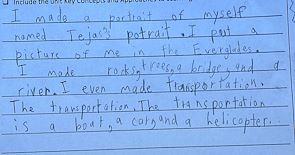 Include the Unit Key Concepts and Approaches to
I made a portrait of myself
named Tejas's potrait. I put a
picture of me in the Everglades.
I made rocks, trees, a bridge, and a
river. I even made Transportation.
The transportation. The transportation
is a boat, a car, and a helicopter.